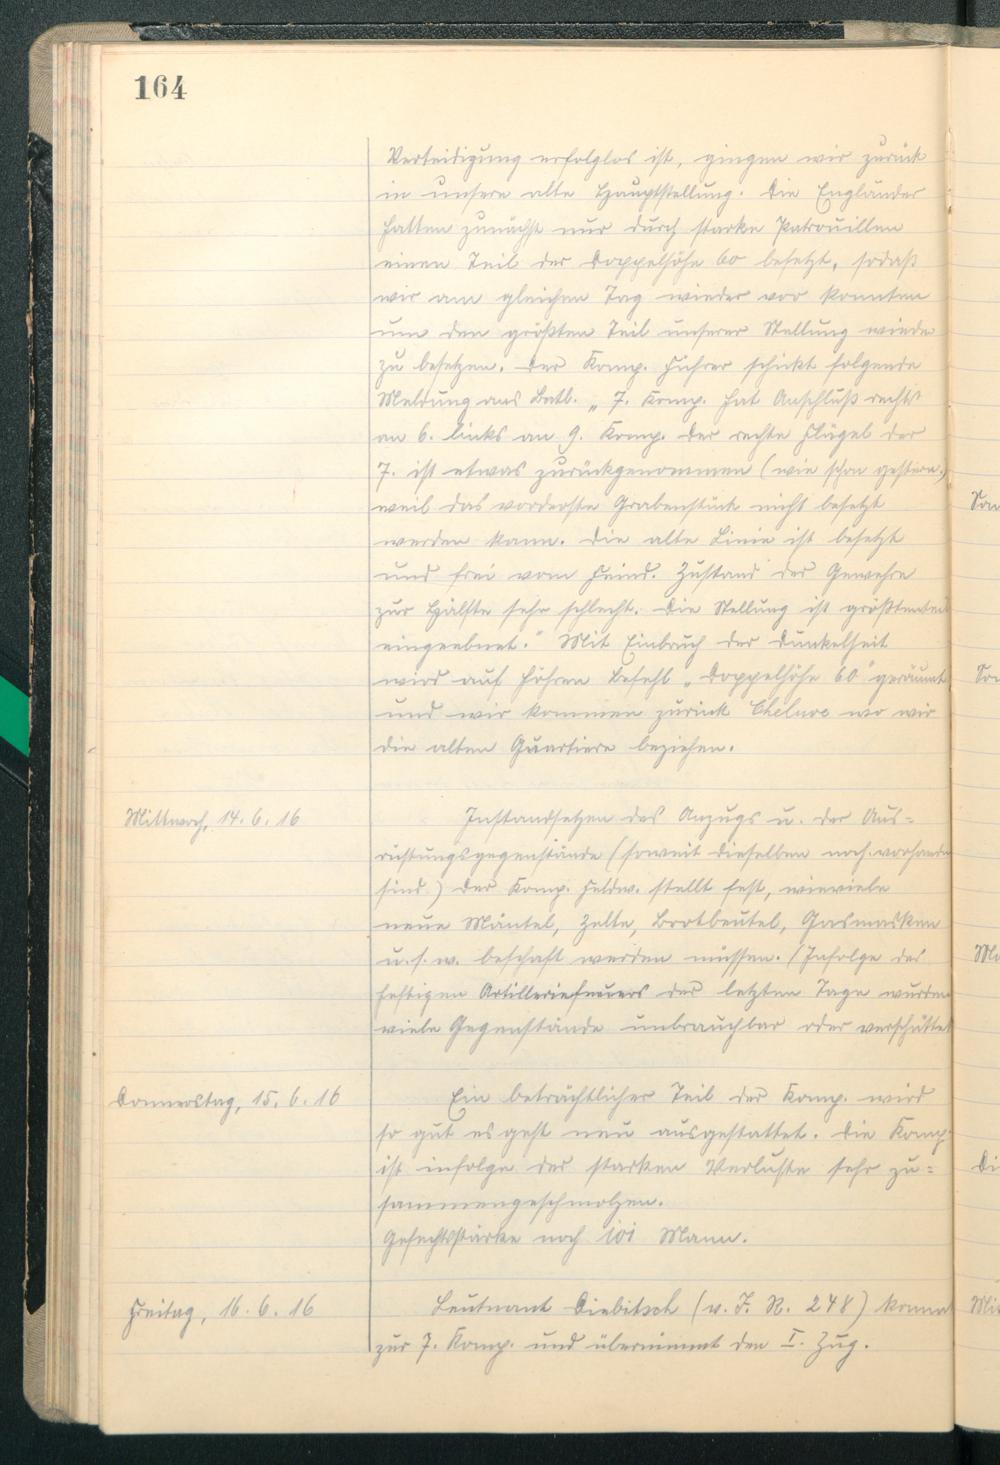 164
Verteidigung erfolglos ist, gingen wir zurück
in unsere alte Hauptstellung. Die Engländer
hatten zunächst nur durch starke Patrouillen
einen Teil der Doppelhöhe 60 besetzt, sodaß
wir am gleichen Tag wieder vor konnten
um den größten Teil unserer Stellung wieder
zu besetzen. Der Komp. Führer schickt folgende
Meldung ans Batl. „7. Komp. hat Anschluß rechts
an 6. links an 9. Komp. Der rechte Flügel der
7. ist etwas zurückgenommen (wie schon gestern.)
weil das vorderste Grabenstück nicht besetzt
werden kann. Die alte Linie ist besetzt
und frei vom Feind. Zustand der Gewehre
zur Hälfte sehr schlecht. Die Stellung ist größtenteils
eingeebnet." Mit Einbruch der Dunkelheit
wird auf höhren Befehl „Doppelhöhe 60" geräumt
und wir kommen zurück wo wir
die alten Quartiere beziehen.
Mittwoch, 14. 6. 16
Instandsetzen des Anzugs u. der Aus=
rüstungsgegenstände (soweit dieselben noch vorhanden
sind) Der Komp. Feldw. stellt fest, wieviele
neue Mäntel, Zelte, Brotbeutel, Gasmasken
u.s.w. beschaft werden müssen. (Infolge des
heftigen Artilleriefeuers der letzten Tage wurden
viele Gegenstände unbrauchbar oder verschüttet
Donnerstag, 15. 6. 16
Ein beträchtlicher Teil der Komp. wird
so gut es geht neu ausgestattet. Die Komp.
ist infolge der starken Verluste sehr zu=
sammengeschmolzen.
Gefechtsstärke noch 101 Mann.
Freitag, 16. 6. 16
Leutnant Diebitsch (v. J. R. 248) kommt
zur 7. Komp. und übernimmt den I. Zug.